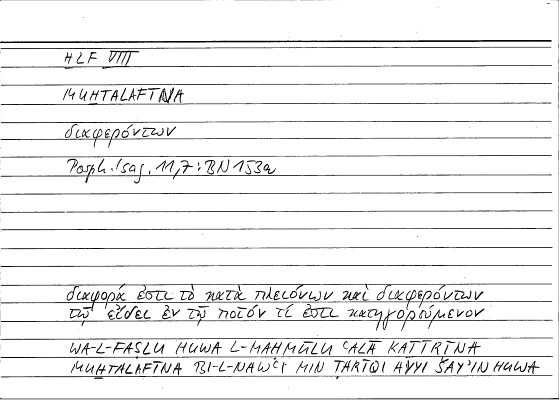 ḪLF VIII
MUḪTALAFĪNA
διαφερόντων
Porph. Isag. 11,7 : BN 153a
διαφορά ἐστι τὸ κατὰ πλειόνων καὶ διαφερόντων
τῷ εἴδει ἐν τῷ ποῖόν τί ἐστι κατηγορούμενον
WA-L-FAṢLU HUWA L-MAḤMŪLU ʿALĀ KAṮĪRĪNA
MUḪTALAFĪNA BI-L-NAWʿI MIN ṬARĪQI AYYI ŠAYʾIN HUWA